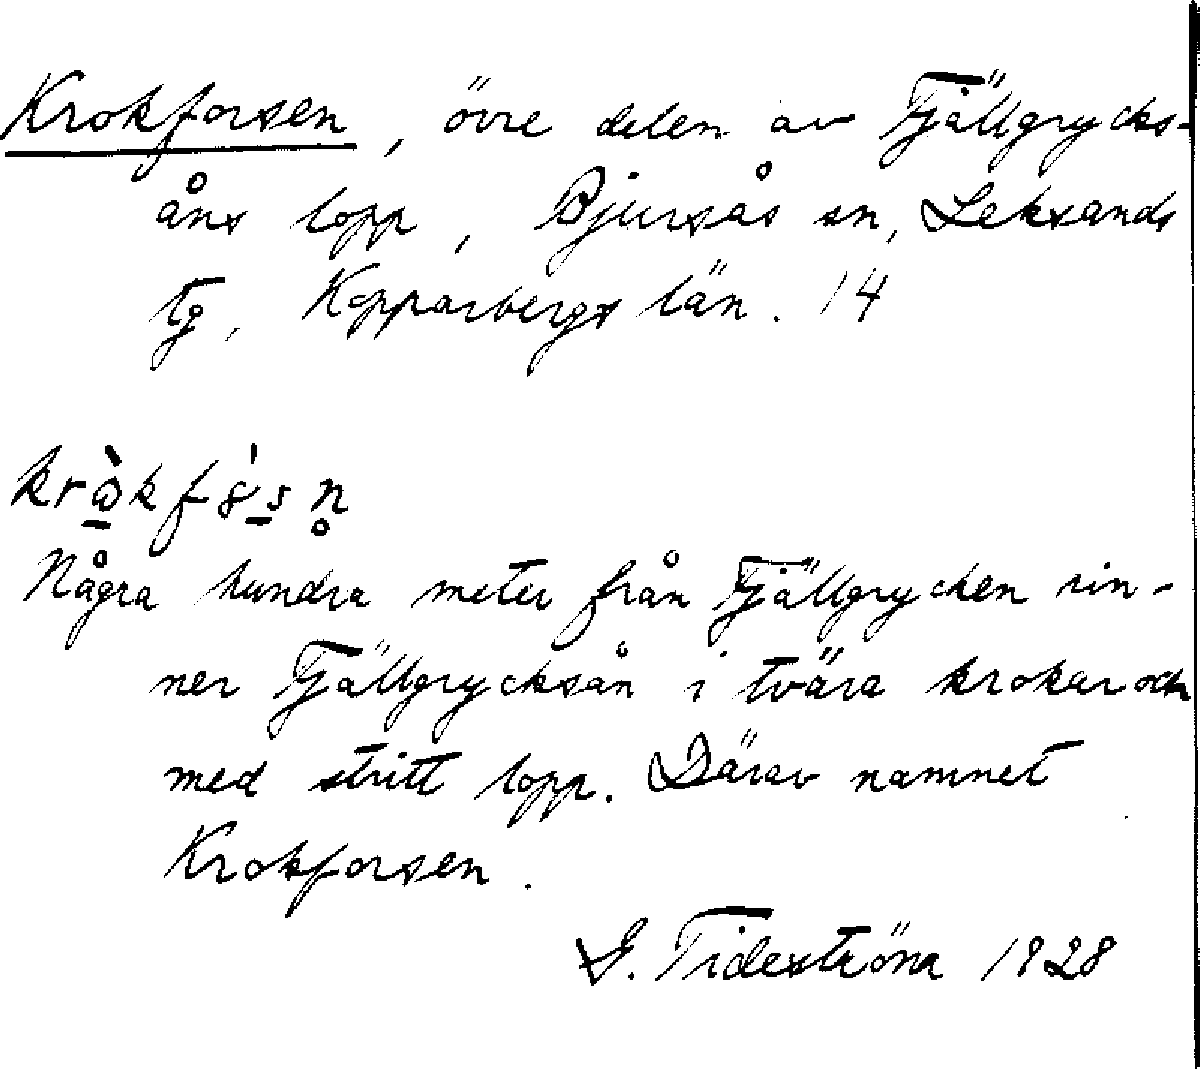 Krokforsen, övre delen av Fjällgrycks-
åns lopp, Bjursås sn, Leksands
tg, Kopparbergs län. 14
Några hundra meter från Fjällgrycken rin-
ner Fjällgrycksån i tvära krokar och
med stritt lopp. Därav namnet
Krokforsen.
G. Tideström 1928